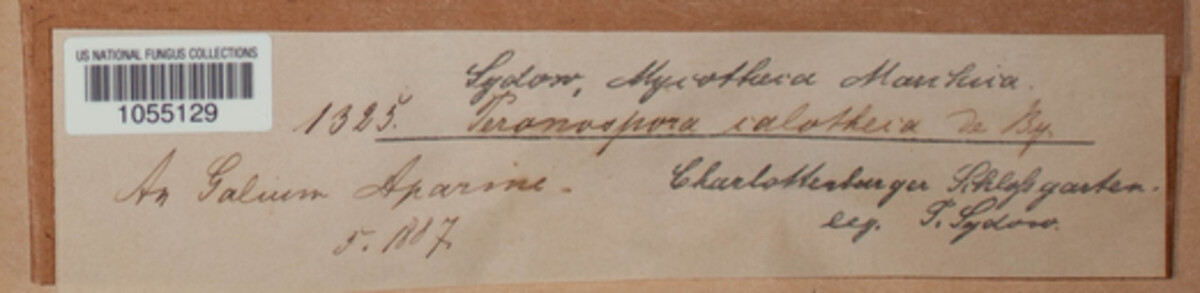 US NATIONAL FUNGUS COLLECTIONS
1055129
Sydow, Mycotheca Marchica.
1325. Peronospora calotheca De By.
An Galium Aparine.
5. 1887.
Charlottenburger Schloßgarten.
leg. P. Sydow.